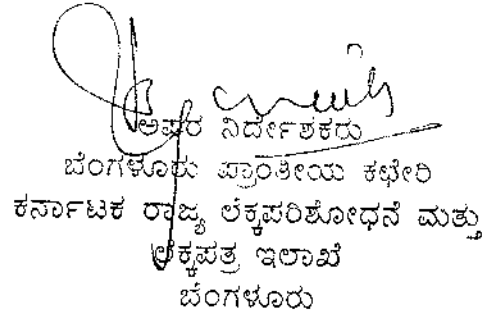 ಅಪರ ನಿರ್ದೇಶಕರು
ಬೆಂಗಳೂರು ಪ್ರಾಂತೀಯ ಕಛೇರಿ
ಕರ್ನಾಟಕ ರಾಜ್ಯ ಲೆಕ್ಕಪರಿಶೋಧನೆ ಮತ್ತು
ಲೆಕ್ಕಪತ್ರ ಇಲಾಖೆ
ಬೆಂಗಳೂರು